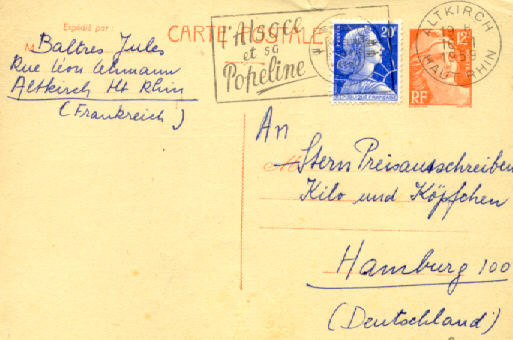 Expédié par :
M Baltres Jules
Rue Léon Lehmann
Altkirch Ht Rhin
(Frankreich)
CARTE POSTALE
L'Alsace
et sa
Popeline
20F
ALTKIRCH
HAUT-RHIN
RF
An
Stern Preisausschreiben
Kilo und Köpfchen
Hamburg 100
(Deutschland)